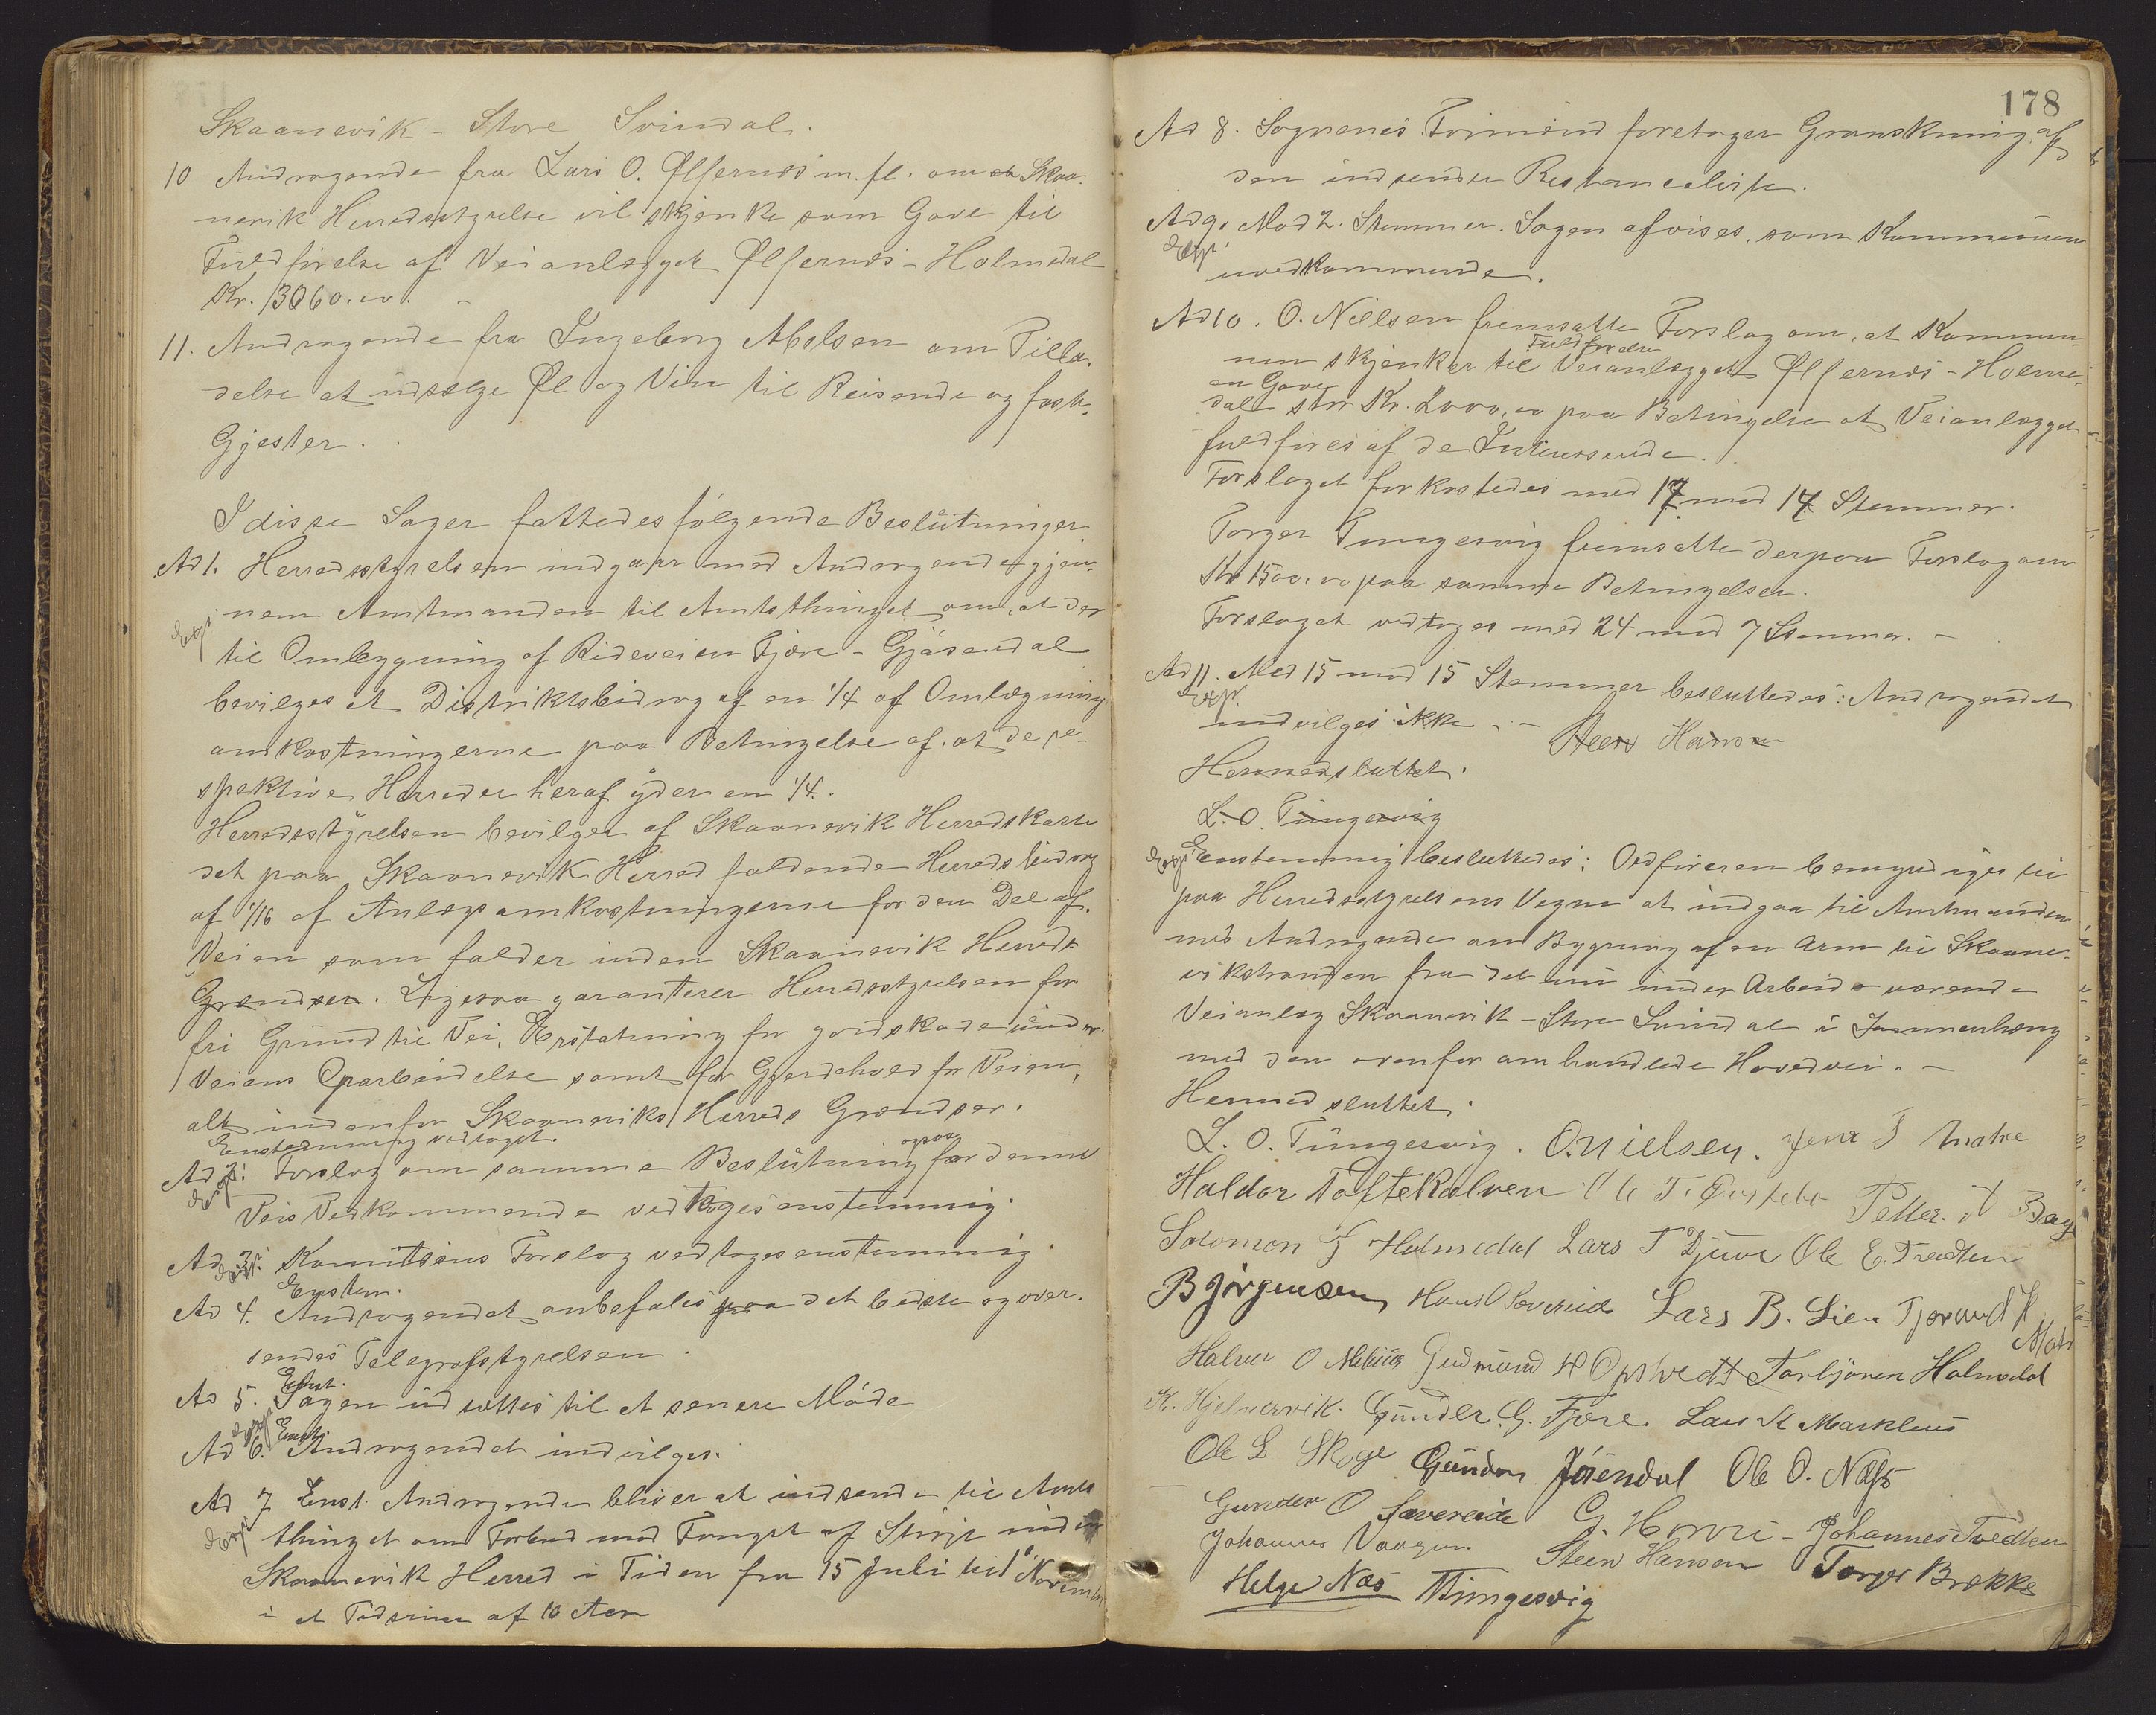 Skaanevik - Store Svindal.
10 Andragende fra Lars O. Ølfernæs m. fl. om at Skaa-
nevik Herredsstyrelse vil skjenke som Gave til
Fuldførelse af Veianlægget Ølfernæs - Holmedal
Kr. 3060.00. -
11. Andragende fra Ingeborg Abelsen om Tilla-
delse at udsælge Øl og Vin til Reisende og faste
Gjester.
I disse Sager fattedes følgende Beslutninger.
Ad 1. Herredsstyrelsen indgaar med Andragende gjen-
Exp. nem Amtmanden til Amtsthinget om, at der
til Omlægning af Rideveien Fjære - Gjásendal
bevilges et Distriktsbidrag af en 1/4 af Omlægnings
omkostningerne paa Betingelse af, at de re-
spektive Herreder heraf yder en 1/4.
Herredsstyrelsen bevilger af Skaanevik Herredskasse
det paa Skaanevik Herred faldende Herredsbidrag
af 1/16 af Anlægsomkostningerne for den Del af
Veien som falder inden Skaanevik Herreds
Grændser. Ligesaa garanterer Herredsstyrelsen for
fri Grund til Vei, Erstatning for Jordskade under
Veiens Oparbeidelse samt for Gjerdehold for Veien,
alt indenfor Skaaneviks Herreds Grændser.
Enstemmig vedtaget.
Ad 2. Forslag om samme Beslutning ogsaa for denne
Exp. Veis Vedkommende vedtoges enstemmig.
Ad 3. Komiteens Forslag vedtoges enstemmig.
Exp.
Enstem.
Ad 4. Andragendet anbefales paa det bedste og over-
sendes Telegrafstyrelsen.
Enst.
Ad 5. Sagen udsættes til et senere Møde
Exp. Enst.
Ad 6. Andragendet indvilges.
Ad 7 Enst. Andragende bliver at indsende til Amts
Exp. thinget om Forbud mod Fangst af Stirje inden
Skaanevik Herred i Tiden fra 15 Juli til 1 November
i et Tidsrum af 10 Aar
178
Ad 8. Sognenes Formænd foretager Granskning af
den indsendte Restanceliste.
Ad 9. Mod 2. Stemmer. Sagen afvises, som Kommunen
Exp. uvedkommende.
Ad 10. O. Nielsen fremsatte Forslag om, at Kommu-
nen skjenker til Fuldførelse Veianlægget Ølfernæs - Holme-
dal en Gave stor Kr. 2000,00 paa Betingelse at Veianlægget
fuldføres af de Interesserede.
Forslaget forkastedes med 17 mod 14 Stemmer.
Torger Tungesvig fremsatte derpaa Forslag om
Kr 1500.00 paa samme Betingelser.
Forslaget vedtoges med 24 mod 7 Stemmer. -
Ad 11. Med 15 mod 15 Stemmer besluttedes: Andragendet
Exp. indvilges ikke. - Steen Hanson
Hermed sluttet.
L. O. Tungesvig
Exp. Enstemmig besluttedes: Ordføreren bemyndiges til
paa Herredsstyrelsens Vegne at indgaa til Amtmanden
med Andragende om Bygning af en Arm til Skaane-
vikstranden fra det nu under Arbeide værende
Veianlæg Skaanevik - Store Svindal i Sammenhæng
med den ovenfor omhandlede Hovedvei. -
Hermed sluttet.
L. O. Tungesvig. O. Nielsen. Jens J
Haldor Toftekalven Ole T. Petter.
Solomon J Holmedal Lars T Djuve Ole E. Tvedten
B Jörgensen Hans O Sævereid Lars B. Lien Tjerand H
Halvor O Gudmund H Opstvedt Torbjören Holmedal
K. Hjelmervik. Gunder G. Fjære. Lars K Markhus
Ole L Skoge Gunder Ole O. Næss
Gunder O Sævereide G. Johannes Tvedten
Johannes Vaagen. Steen Hanson Torger Brække
Helge Næs T Tungesvig